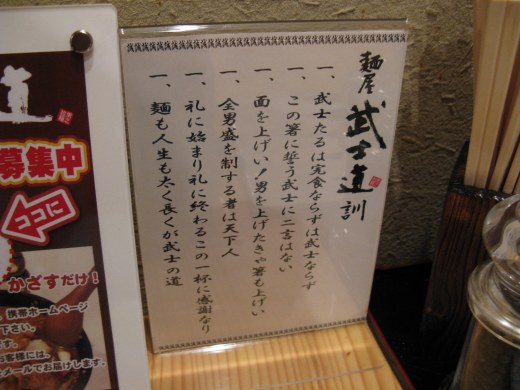 麺屋 武士道 訓
一、武士たるは完食ならずは武士ならず
一、この箸に誓う武士に二言はない
一、面を上げい!男を上げたきゃ箸も上げい
一、全男盛を制する者は天下人
一、礼に始まり礼に終わるこの一杯に感謝なり
一、麺も人生も太く長くが武士の道
道
募集中
ココに
かざすだけ!
携帯ホームページ
下さい。
メールでお届けします。